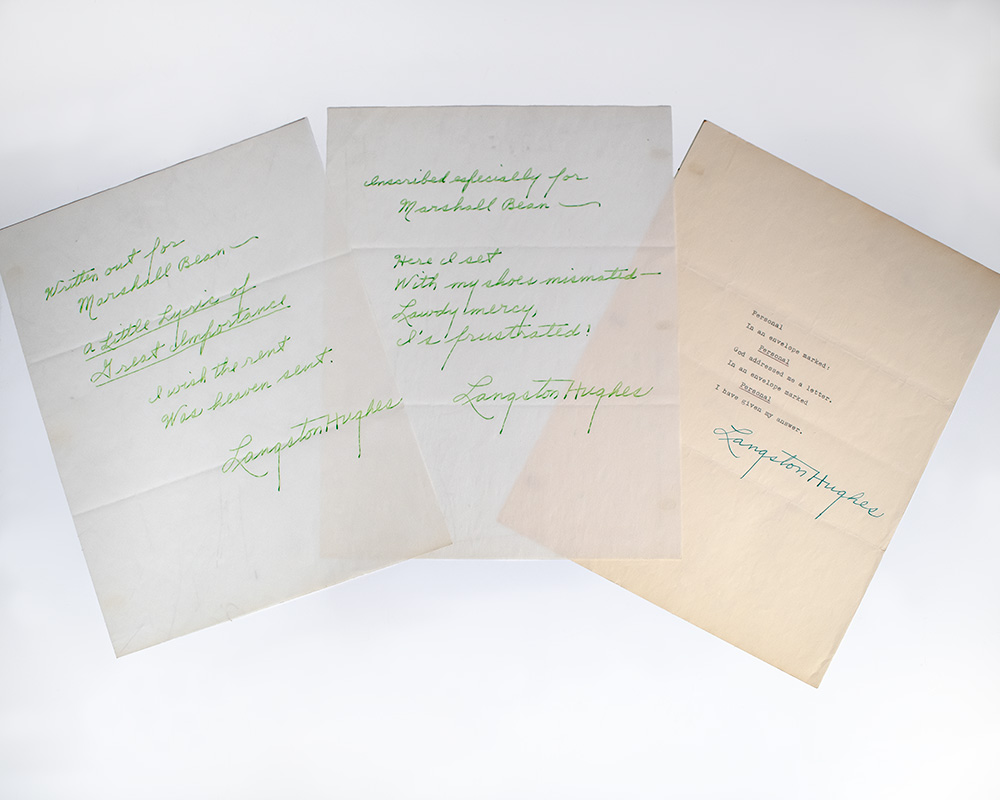 Written out for
Marshall Bean —
A Little Lyric of
Great Importance
I wish the rent
Was heaven sent.
Langston Hughes
Inscribed especially for
Marshall Bean —
Here I set
With my shoes mismated—
Lawdy mercy,
I's frustrated!
Langston Hughes
Personal
In an envelope marked:
Personal
God addressed me a letter.
In an envelope marked
Personal
I have given my answer.
Langston Hughes